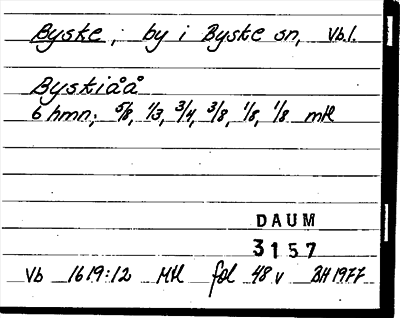 Byske, by i Byske sn, Vb.l.
Bystiåå
6 hmn; 5/8, 1/3, 3/4, 3/8, 1/8, 1/8 mtl
DAUM
3157
Vb 1619:12 Mtl fol 48 v BH 1977